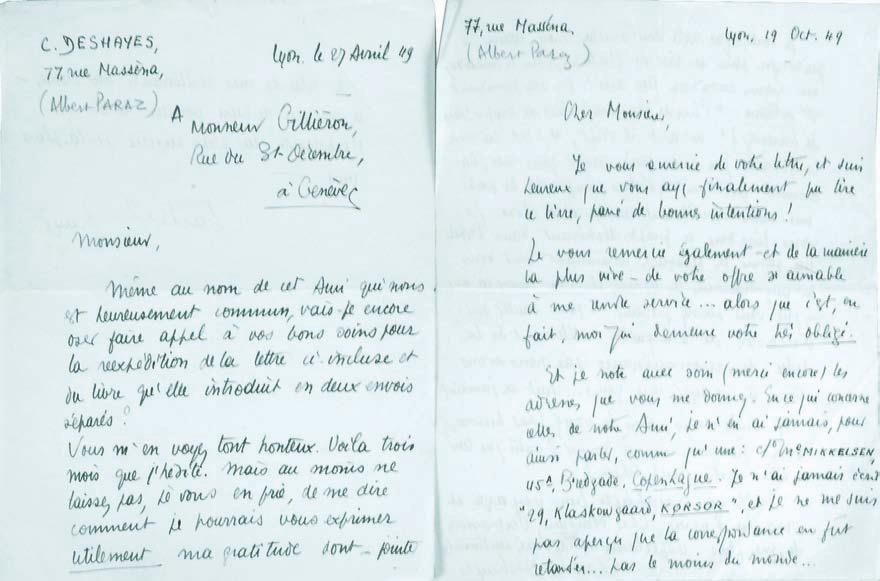 C. DESHAYES,
77, rue Masséna,
(Albert PARAZ)
Lyon, le 27 Avril 49
A
Monsieur Gilliéron,
Rue du 31-Décembre,
à Genève
Monsieur,
Même au nom de cet Ami qui nous
est heureusement commun, vais-je encore
oser faire appel à vos bons soins pour
la réexpédition de la lettre ci-incluse et
du livre qu'elle introduit en deux envois
séparés ?
Vous m'en voyez tout honteux. Voilà trois
mois que j'hésite. Mais au moins ne
laissez pas, je vous en prie, de me dire
comment je pourrais vous exprimer
utilement ma gratitude dont - jointe
77, rue Masséna.
(Albert Paraz)
Lyon, 19 Oct. 49
Cher Monsieur,
Je vous remercie de votre lettre, et suis
heureux que vous ayez finalement pu lire
ce livre, pavé de bonnes intentions !
Je vous remercie également - et de la manière
la plus vive - de votre offre si aimable
à me rendre service... alors que c'est, en
fait, moi qui demeure votre très obligé.
Et je note avec soin (merci encore) les
adresses que vous me donnez. En ce qui concerne
celles de notre Ami, je n'en ai jamais, pour
ainsi parler, connu qu'une : c/o Me MIKKELSEN,
45A, Bredgade, Copenhague. Je n'ai jamais écrit
"29, Klaskowgaard, KØRSOR", et je ne me suis
pas aperçu que la correspondance en fut
retardée... pas le moins du monde...